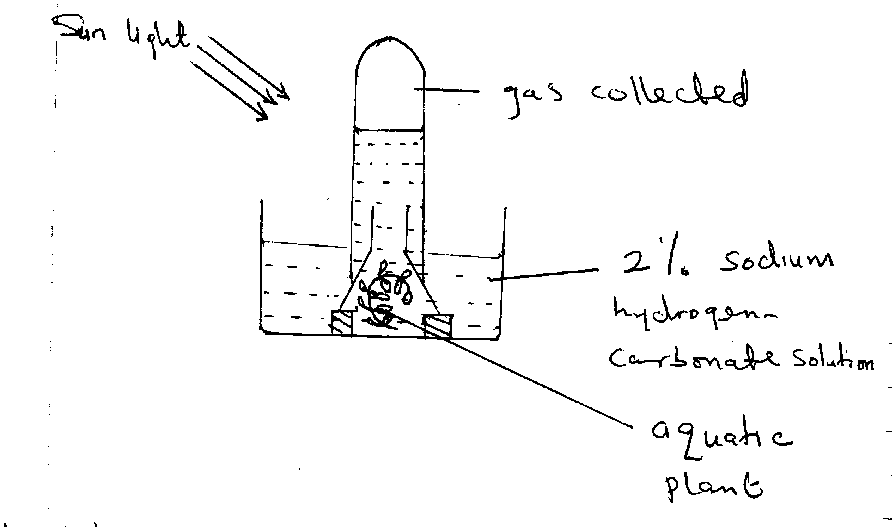 Sun light
gas collected
2% sodium
hydrogen-
carbonate solution
aquatic
plant